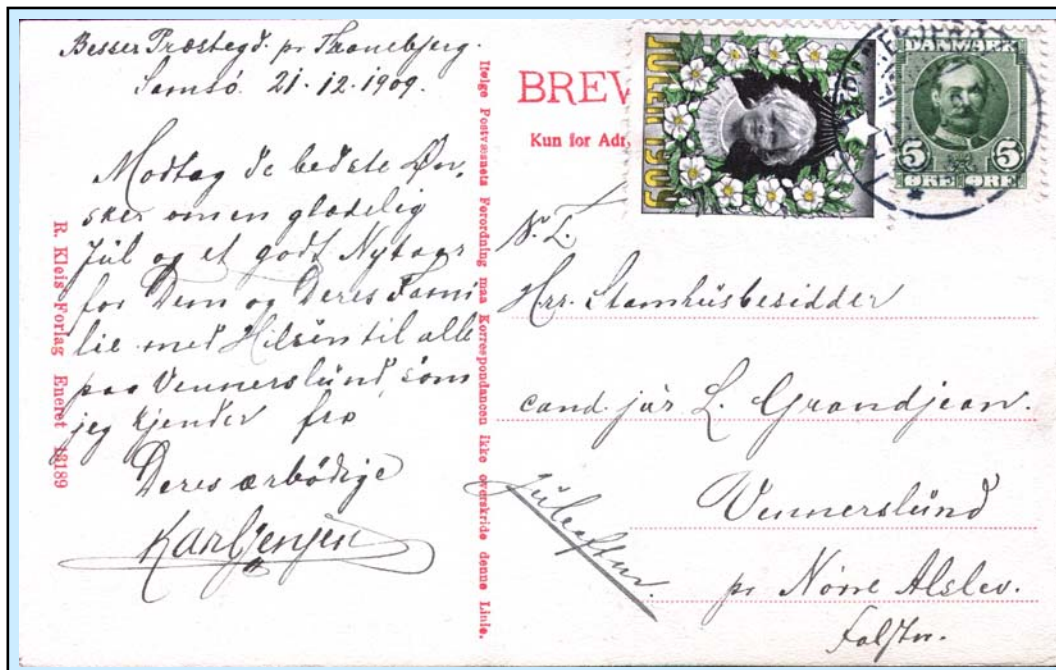 Besser Præstegd. pr Tranebjerg.
Samsö. 21-12-1909.
Modtag de bedste Øn-
sker om en glædelig
Jul og et godt Nytaar
for Dem og Deres Fami
lie med Hilsen til alle
paa Vennerslund, som
jeg kjender fra
Deres ærbödige
Karl Jensen
R. Kleis Forlag Eneret 13189
Ifølge Postvæsnets Forordning maa Korrespondancen ikke overskride denne Linie.
BREV
Kun for Adr.
JULEN 1909
DANMARK
5 5
ØRE ØRE
Hrr. Stamhusbesidder
cand. jur L. Grandjean.
Vennerslund
pr Nörre Alslev.
Falster.
Juleaften.